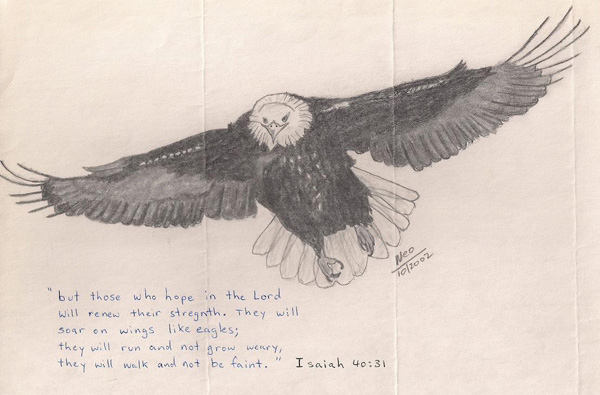 Neo
10/2002
"but those who hope in the Lord
will renew their stregnth. They will
soar on wings like eagles;
they will run and not grow weary,
they will walk and not be faint." Isaiah 40:31